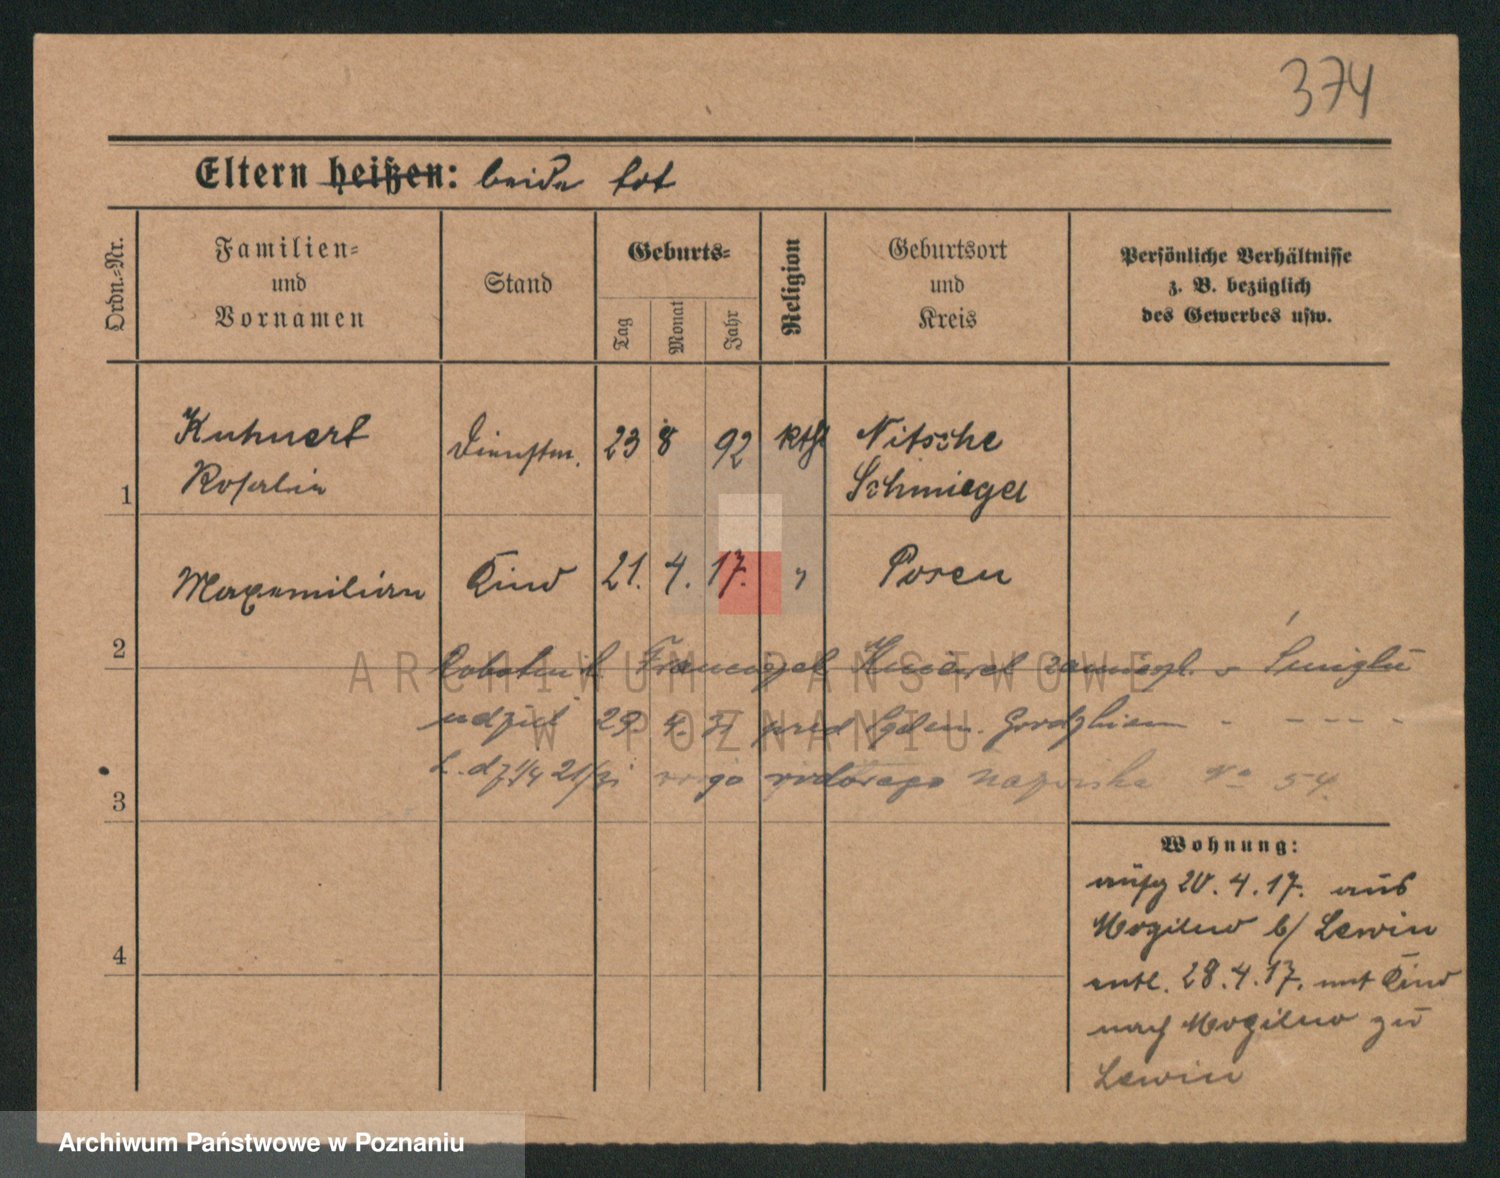 374
Eltern heißen: beide tot
Ordn.-Nr.
Familien-
und
Vornamen
Stand
Geburts-
Tag
Monat
Jahr
Religion
Geburtsort
und
Kreis
Persönliche Verhältnisse
z. B. bezüglich
des Gewerbes usw.
Kuhnert Dienstm. 23 8 92 kth Nitsche
1 Rosalie Schmiegel
Maxemilian Kind 21. 4. 17. " Posen
2
Robotnik Franciszek zamieszk. w Śmiglu
29 4. 31
L. dz. 21/31 nazwiska No 54.
3
Wohnung:
aufg 20. 4. 17. aus
Mogilno b/ Lewin
4
entl. 28. 4. 17. mit Kind
nach Mogilno zu
Lewin
ARCHIWUM PAŃSTWOWE
W POZNANIU
Archiwum Państwowe w Poznaniu